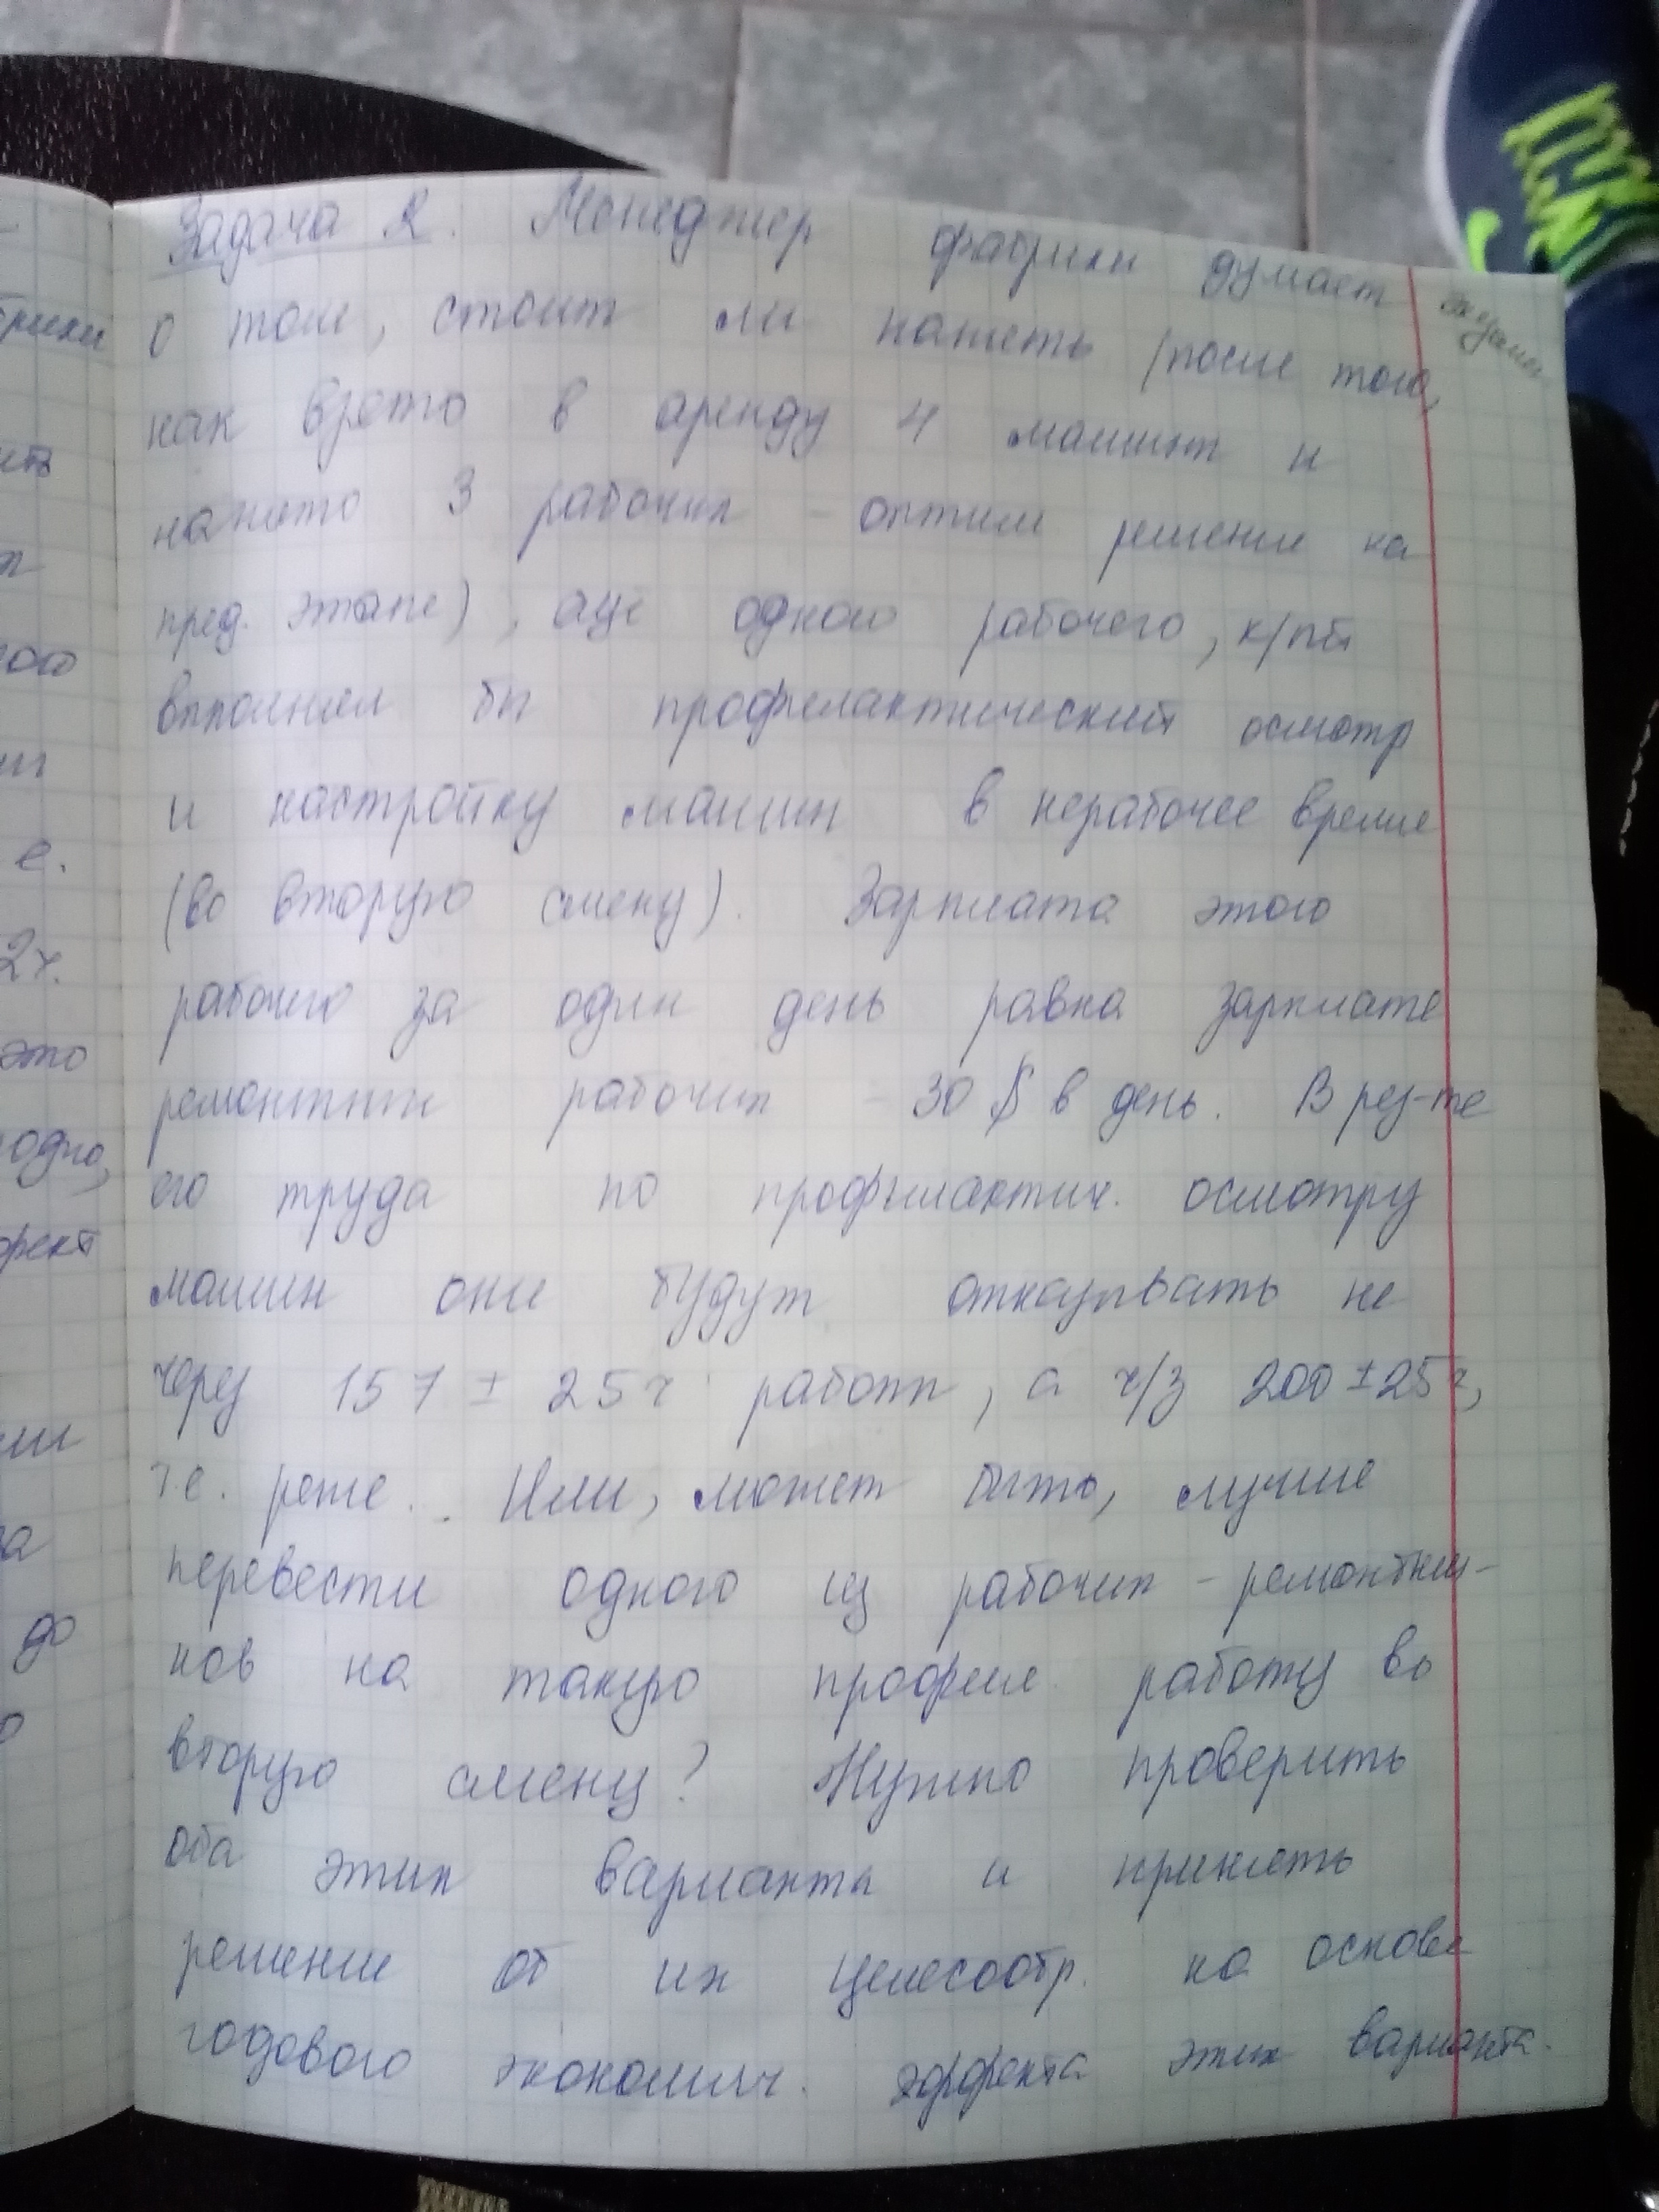 Задача 2. Менеджер фабрики думает
о том, стоит ли нанять (после того,
как взято в аренду 4 машины и
нанято 3 рабочих - оптим решение на
пред. этапе), еще одного рабочего, к/рый
выполнял бы профилактический осмотр
и настройку машин в нерабочее время
(во вторую смену). Зарплата этого
рабочего за один день равна зарплате
ремонтных рабочих - 30 $ в день. В рез-те
его труда по профилактич. осмотру
машин они будут отказывать не
через 157 ± 25ч работы, а ч/з 200 ± 25ч,
т.е. реже. Или, может быть, лучше
перевести одного из рабочих - ремонтни-
ков на такую профил. работу во
вторую смену? Нужно проверить
оба этих варианта и принять
решение об их целесообр. на основе
годового экономич. эффекта этих варианта.
рики
ого
е.
2ч.
это
одно,
фект
ми
а
до